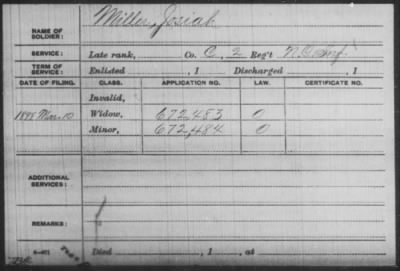 NAME OF SOLDIER: Miller, Josiah
SERVICE: Late rank, Co. C, 2 Reg't N.C. Inf.
TERM OF SERVICE: Enlisted , 1 Discharged , 1
DATE OF FILING. CLASS. APPLICATION NO. LAW. CERTIFICATE NO.
Invalid,
1898 Mar. 10 Widow, 672,483 O
Minor, 672,484 O
ADDITIONAL SERVICES:
REMARKS:
Died , 1 , at